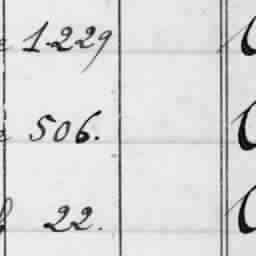 1229
506.
22.